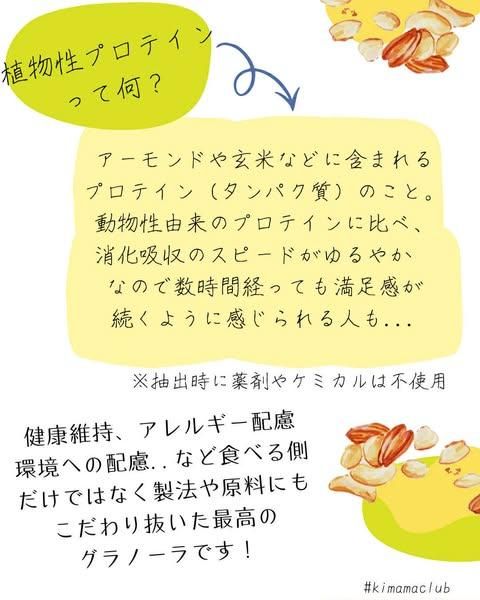 植物性プロテイン
って何？
アーモンドや玄米などに含まれる
プロテイン（タンパク質）のこと。
動物性由来のプロテインに比べ、
消化吸収のスピードがゆるやか
なので数時間経っても満足感が
続くように感じられる人も...
※抽出時に薬剤やケミカルは不使用
健康維持、アレルギー配慮
環境への配慮..など食べる側
だけではなく製法や原料にも
こだわり抜いた最高の
グラノーラです！
#kimamaclub